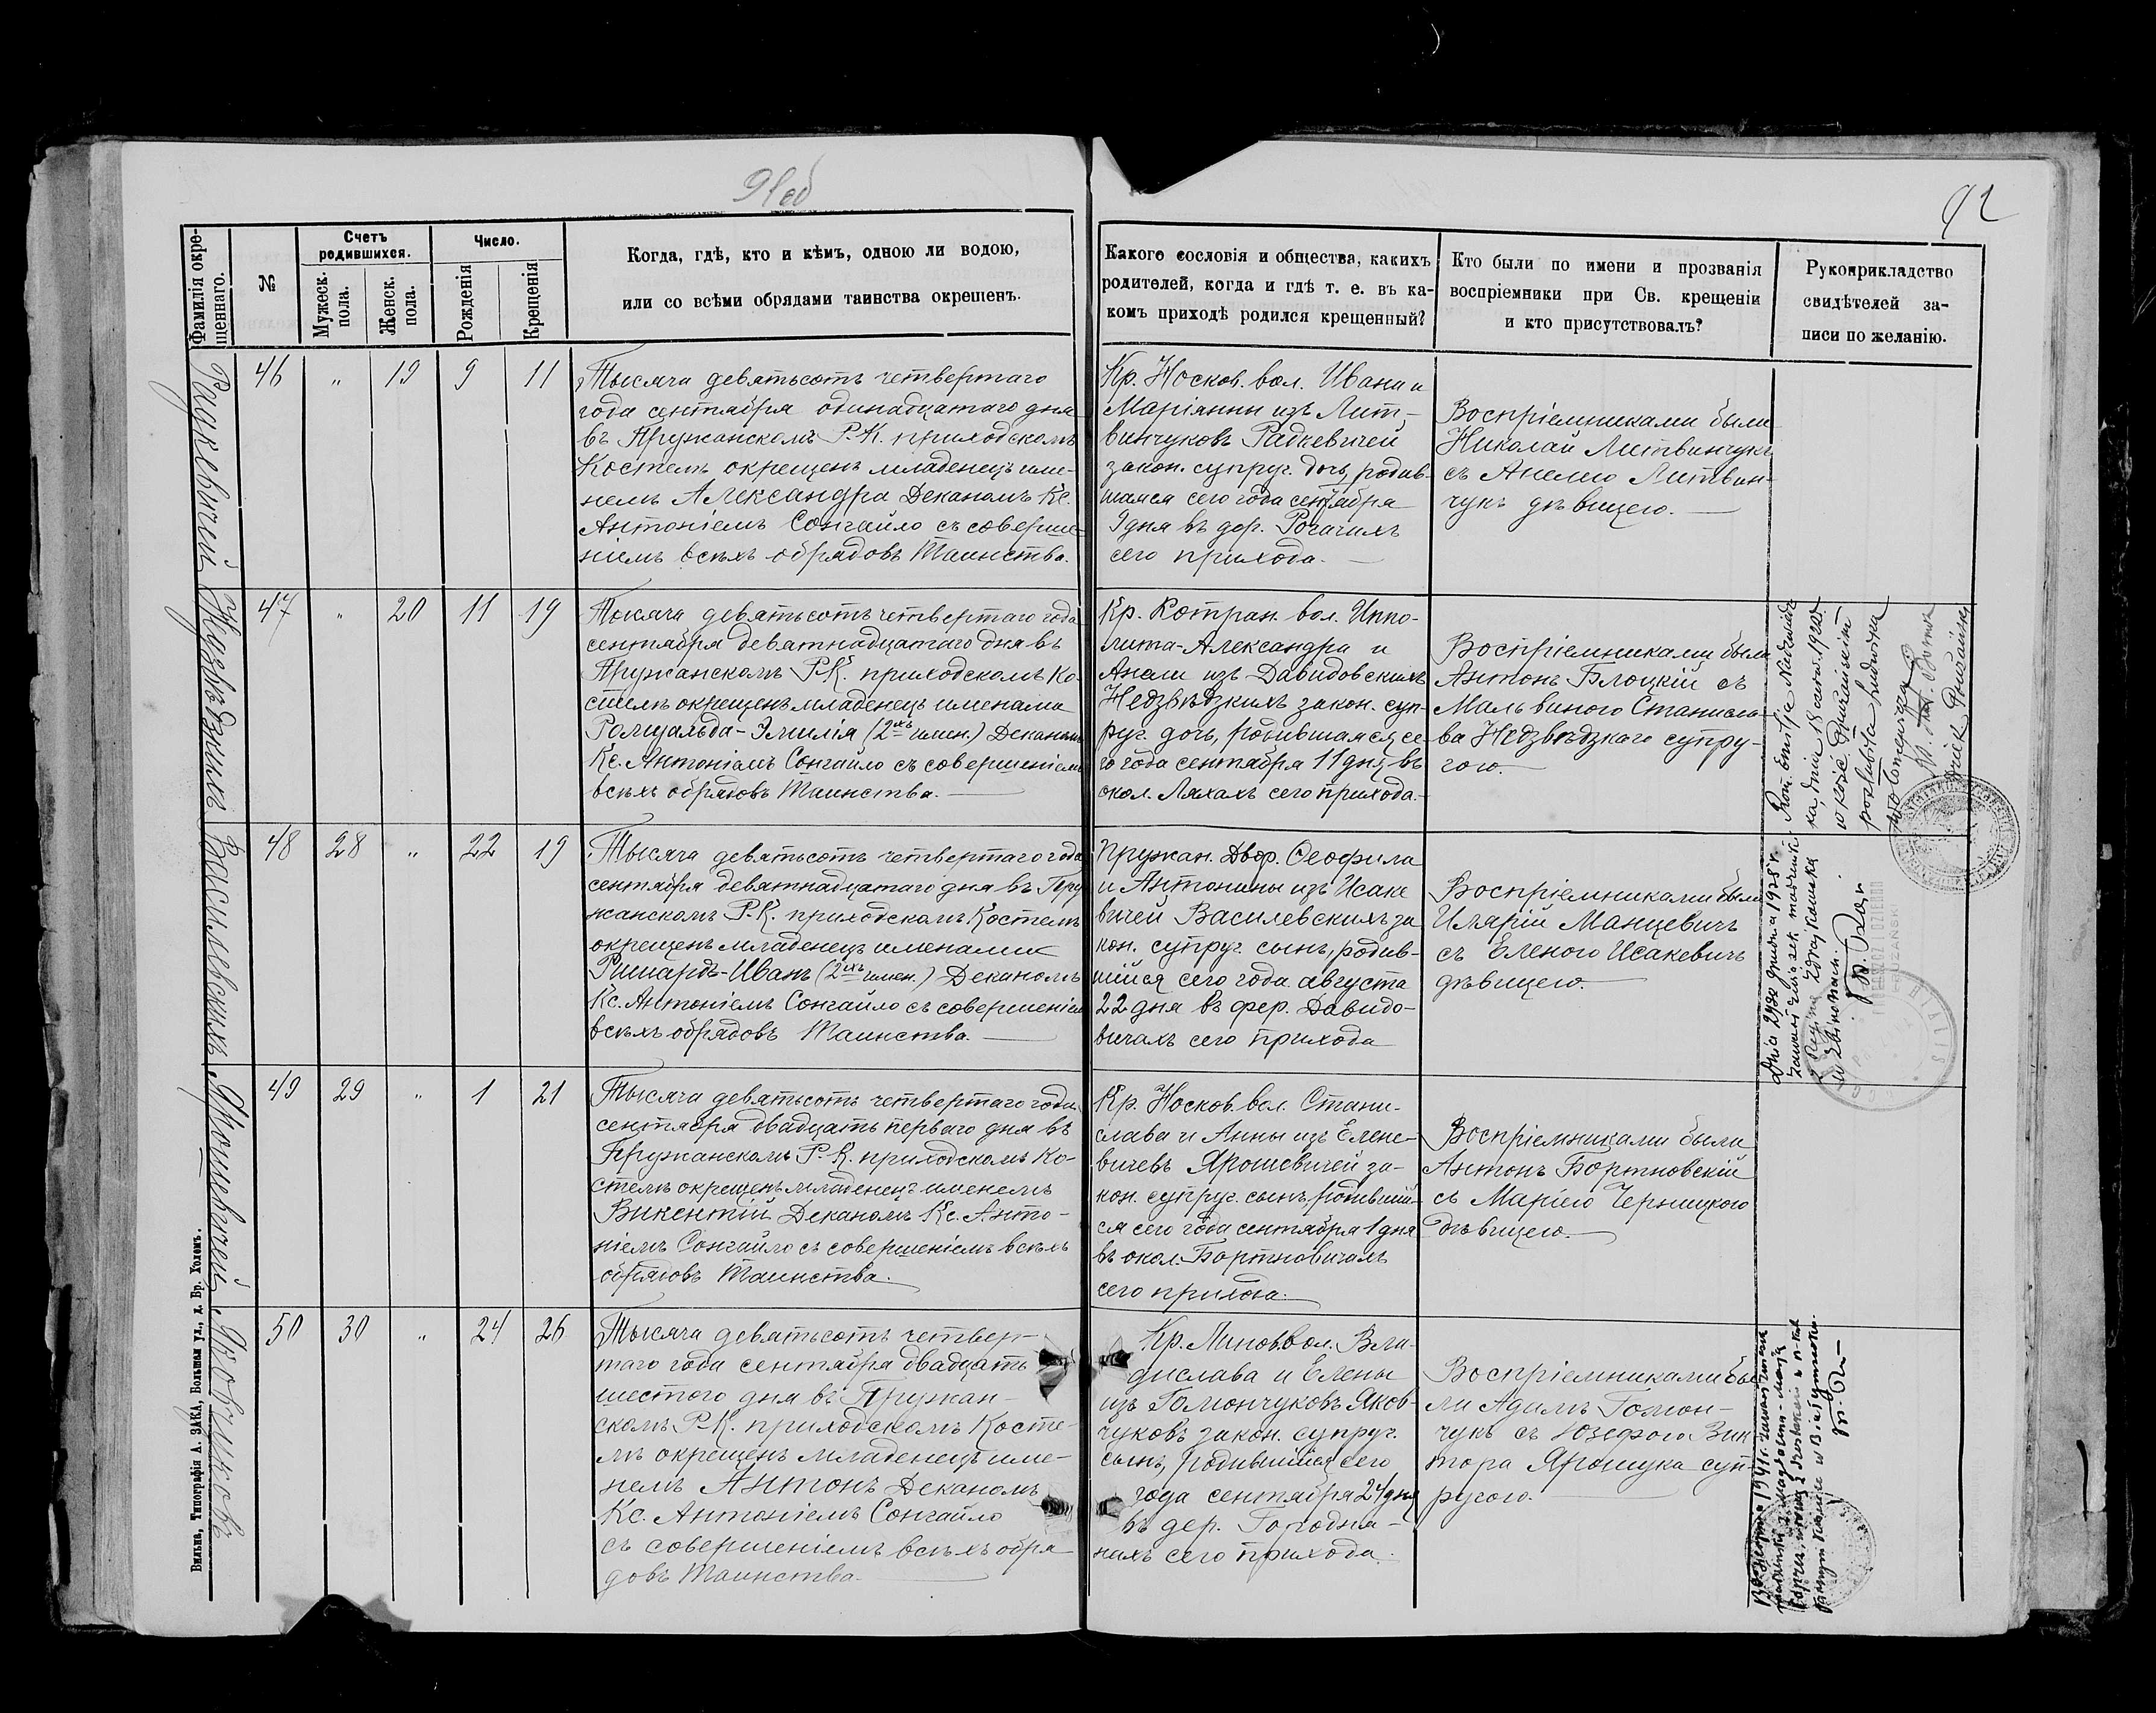 91об
92
Фамилія окре-
щеннаго.
№
Счетъ
родившихся.
Мужеск.
пола.
Женск.
пола.
Число.
Рожденія
Крещенія
Когда, гдѣ, кто и кѣмъ, одною ли водою,
или со всѣми обрядами таинства окрещенъ.
Какого сословія и общества, какихъ
родителей, когда и гдѣ т. е. въ ка-
комъ приходѣ родился крещенный?
Кто были по имени и прозванія
воспріемники при Св. крещеніи
и кто присутствовалъ?
Рукоприкладство
свидѣтелей за-
писи по желанію.
Радкевичей
46 " 19 9 11
Тысяча девятьсотъ четвертаго
года сентября одинадцатаго дня
въ Пружанскомъ Р.К. приходскомъ
Костелѣ окрещенъ младенецъ име-
немъ Александра Деканомъ Кс.
Антоніемъ Сонгайло съ соверше-
ніемъ всѣхъ обрядовъ Таинства.
Кр. Носков. вол. Ивана и
Маріянны изъ Лит-
винчуковъ Радкевичей
закон. супруг. дочь, родив-
шаяся сего года сентября
9 дня въ дер. Рогачахъ
сего прихода.
Воспріемниками были
Николай Литвинчукъ
съ Анелею Литвин-
чукъ дѣвицею.
Недзвѣдзкихъ
47 " 20 11 19
Тысяча девятьсотъ четвертаго года
сентября девятнадцатаго дня въ
Пружанскомъ Р.К. приходскомъ Ко-
стелѣ окрещенъ младенецъ именами
Ромуальда-Эмилія (2хъ имен.) Деканомъ
Кс. Антоніемъ Сонгайло съ совершеніемъ
всѣхъ обрядовъ Таинства.
Кр. Котран. вол. Иппо-
лита-Александра и
Анели изъ Давидовскихъ
Недзвѣдзкихъ закон. суп-
руг. дочь, родившаяся се-
го года сентября 11 дня въ
окол. Ляхахъ сего прихода.
Воспріемниками были
Антонъ Блоцкій съ
Мальвиною Станисла-
ва Недзвѣдзкаго супру-
гою.
Василевскихъ
48 28 " 22 19
Тысяча девятьсотъ четвертаго года
сентября девятнадцатаго дня въ Пру-
жанскомъ Р.К. приходскомъ Костелѣ
окрещенъ младенецъ именами
Ришардъ-Иванъ (2хъ имен.) Деканомъ
Кс. Антоніемъ Сонгайло съ совершеніемъ
всѣхъ обрядовъ Таинства.
Пружан. Двор. Ѳеофила
и Антонины изъ Исаке
вичей Василевскихъ за
кон. супруг. сынъ, родив-
шійся сего года августа
22 дня въ фер. Давидо-
вичахъ сего прихода
Воспріемниками были
Иларій Манцевичъ
съ Еленою Исакевичъ
дѣвицею.
Dnia
1928 r.
Ярошевичей
49 29 " 1 21
Тысяча девятьсотъ четвертаго года
сентября двадцать перваго дня въ
Пружанскомъ Р.К. приходскомъ Ко-
стелѣ окрещенъ младенецъ именемъ
Викентій Деканомъ Кс. Анто-
ніемъ Сонгайло съ совершеніемъ всѣхъ
обрядовъ Таинства.
Кр. Носков. вол. Стани-
слава и Анны изъ Елене-
вичевъ Ярошевичей за-
кон. супруг. сынъ, родившій-
ся сего года сентября 1 дня
въ окол. Бортновичахъ
сего прихода.
Воспріемниками были
Антонъ Бортновскій
съ Маріею Черницкою
дѣвицею.
Яковчуковъ
50 30 " 24 26
Тысяча девятьсотъ четвер-
таго года сентября двадцать
шестого дня въ Пружан-
скомъ Р.К. приходскомъ Косте-
лѣ окрещенъ младенецъ име-
немъ Антонъ Деканомъ
Кс. Антоніемъ Сонгайло
съ совершеніемъ всѣхъ обря-
довъ Таинства.
Кр. Линов. вол. Вла-
дислава и Елены
изъ Гомончуковъ Яков-
чуковъ закон. супруг.
сынъ, родившійся сего
года сентября 24 дня
въ дер. Городня-
нахъ сего прихода.
Воспріемниками бы-
ли Адамъ Гомон-
чукъ съ Юзефою Вик
тора Ярошука суп-
ругою.
Вильна, Типографія А. ЗАКА, Большая ул., д. Бр. Холемъ.